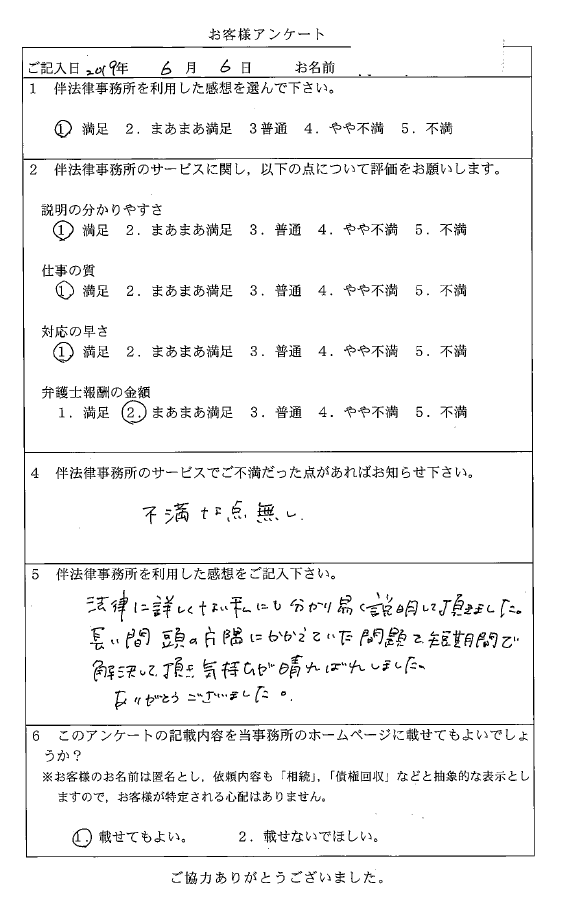 お客様アンケート
ご記入日 2019年 6月 6日 お名前
1 伴法律事務所を利用した感想を選んで下さい。
① 満足 2.まあまあ満足 3普通 4.やや不満 5.不満
2 伴法律事務所のサービスに関し,以下の点について評価をお願いします。
説明の分かりやすさ
① 満足 2.まあまあ満足 3.普通 4.やや不満 5.不満
仕事の質
① 満足 2.まあまあ満足 3.普通 4.やや不満 5.不満
対応の早さ
① 満足 2.まあまあ満足 3.普通 4.やや不満 5.不満
弁護士報酬の金額
1.満足 ②.まあまあ満足 3.普通 4.やや不満 5.不満
4 伴法律事務所のサービスでご不満だった点があればお知らせ下さい。
不満な点無し.
5 伴法律事務所を利用した感想をご記入下さい。
法律に詳しくない私にも分かり易く説明して頂きました。
長い間頭の片隅にかかえていた問題で短期間で
解決して頂き気持ちが晴ればれしました。
ありがとうございました。
6 このアンケートの記載内容を当事務所のホームページに載せてもよいでしょ
うか?
※お客様のお名前は匿名とし,依頼内容も「相続」,「債権回収」などと抽象的な表示とし
ますので,お客様が特定される心配はありません。
①.載せてもよい。 2.載せないでほしい。
ご協力ありがとうございました。